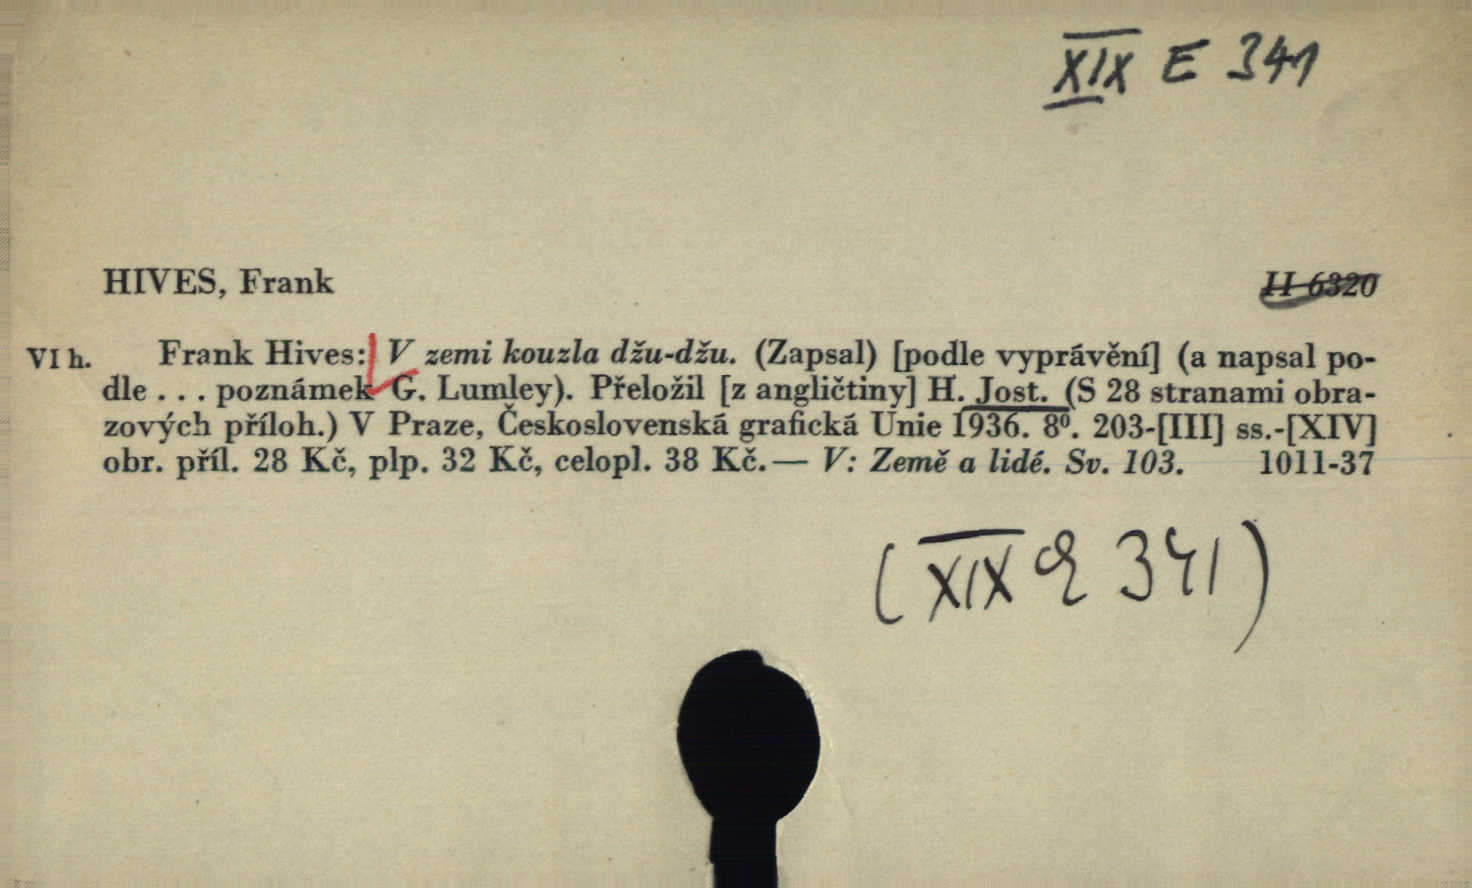 XIX E 341
HIVES, Frank
II 6320
VI h. Frank Hives: V zemi kouzla džu-džu. (Zapsal) [podle vyprávění] (a napsal po-
dle . . . poznámek G. Lumley). Přeložil [z angličtiny] H. Jost. (S 28 stranami obra-
zových příloh.) V Praze, Československá grafická Unie 1936. 8⁰. 203-[III] ss.-[XIV]
obr. příl. 28 Kč, plp. 32 Kč, celopl. 38 Kč.— V: Země a lidé. Sv. 103. 1011-37
(XIX E 341)